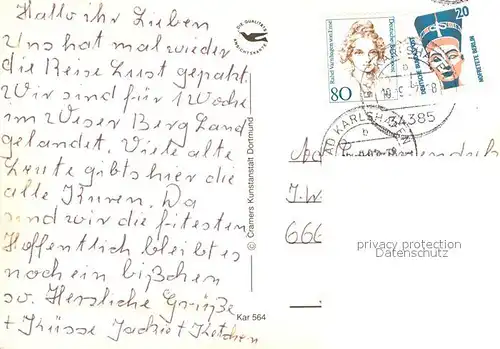 Hallo ihr Lieben
Uns hat mal wieder
die Reise Lust gepakt.
Wir sind für 1 Woche
im Weser Berg Land
gelandet. Viele alte
Leute gibts hier die
alle Kuren. Da
sind wir die fitesten
Hoffentlich bleibt es
noch ein bißchen
so. Herzliche Grüße
+ Küsse Jackie +
DIE QUALITÄTS
ANSICHTSKARTE
© Cramers Kunstanstalt Dortmund
Kar 564
Rahel Varnhagen von Ense
Deutsche Bundespost
80
20
DEUTSCHE BUNDESPOST
NOFRETETE BERLIN
34385
BAD KARLSHAFEN
b
J.W
666
privacy protection
Datenschutz